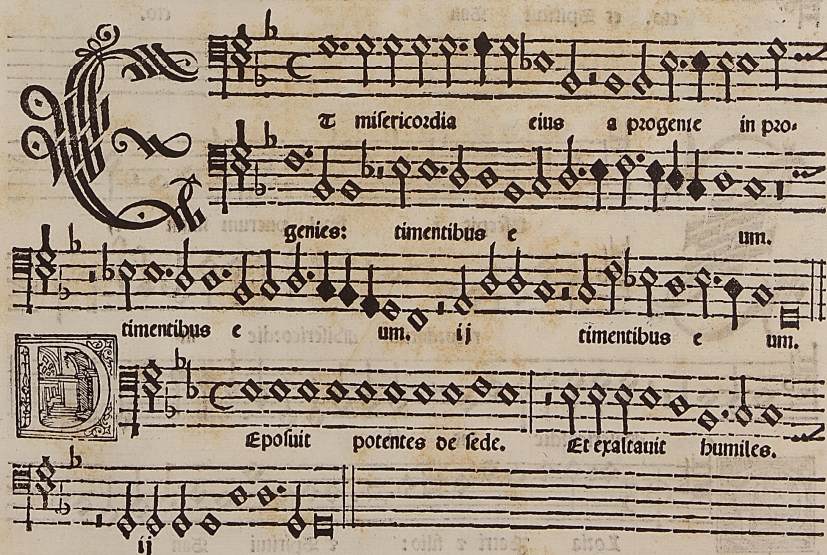 ET misericordia eius a progenie in pro-
genies: timentibus e um.
timentibus e um. ij timentibus e um.
DEposuit potentes de sede. Et exaltauit humiles.
ij